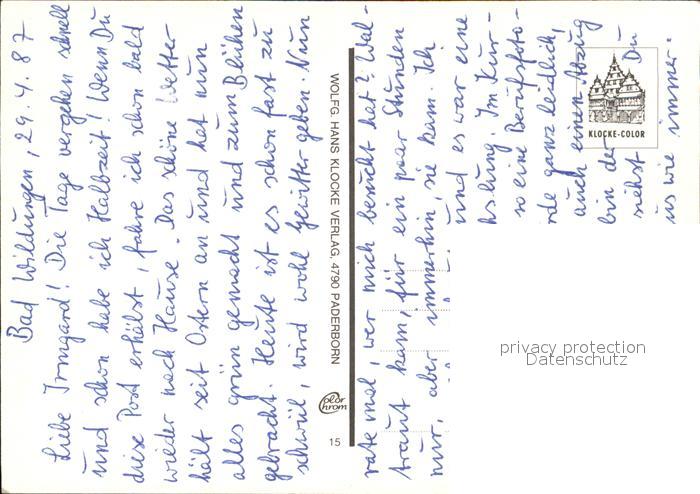 Bad Wildungen, 29.4.87
Liebe Irmgard! Die Tage vergehen schnell
und schon habe ich Halbzeit! Wenn Du
diese Post erhälst, fahre ich schon bald
wieder nach Hause. Das schöne Wetter
hält seit Ostern an und hat nun
alles grün gemacht und zum Blühen
gebracht. Heute ist es schon fast zu
schwül, wird wohl Gewitter geben. Nun
WOLFG. HANS KLOCKE VERLAG, 4790 PADERBORN
Color Chrom
15
rate mal, wer mich besucht hat? Wal-
traut kam, für ein paar Stunden
nur, aber immerhin, sie kam. Ich
und es war eine
hslung. Im Kur-
so eine Berufsfoto-
rde ganz leidlich,
auch einen Abzug
bin der
siehst Du
us wie immer.
KLOCKE-COLOR
privacy protection
Datenschutz